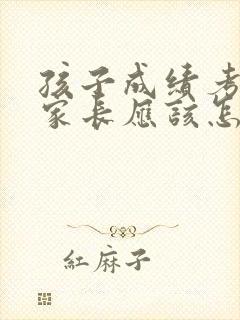 孩子成绩考
家长应该怎
紅麻子